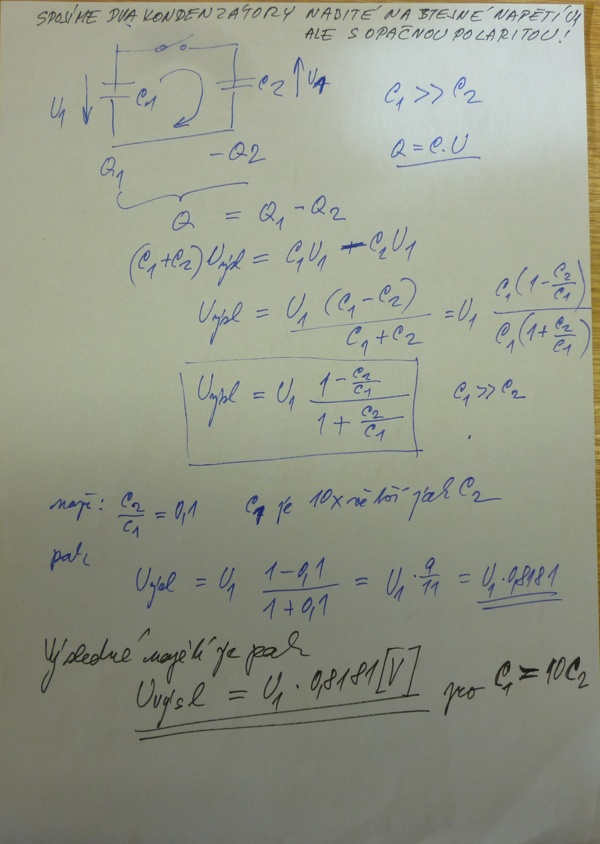 SPOJÍME DVA KONDENZÁTORY NABITÉ NA STEJNÉ NAPĚTÍ U1
ALE S OPAČNOU POLARITOU!
U1 C1 C2 U1
C1 >> C2
Q = C.U
Q1 -Q2
Q = Q1 - Q2
(C1+C2) Uvýsl = C1U1 - C2U1
Uvýsl = U1 (C1-C2) / (C1+C2) = U1 C1(1-C2/C1) / C1(1+C2/C1)
Uvýsl = U1 (1-C2/C1) / (1+C2/C1) C1 >> C2
např: C2/C1 = 0,1 C1 je 10x větší jak C2
pak
Uvýsl = U1 (1-0,1) / (1+0,1) = U1 · 9/11 = U1 · 0,8181
Výsledné napětí je pak
Uvýsl = U1 · 0,8181 [V] pro C1 = 10C2